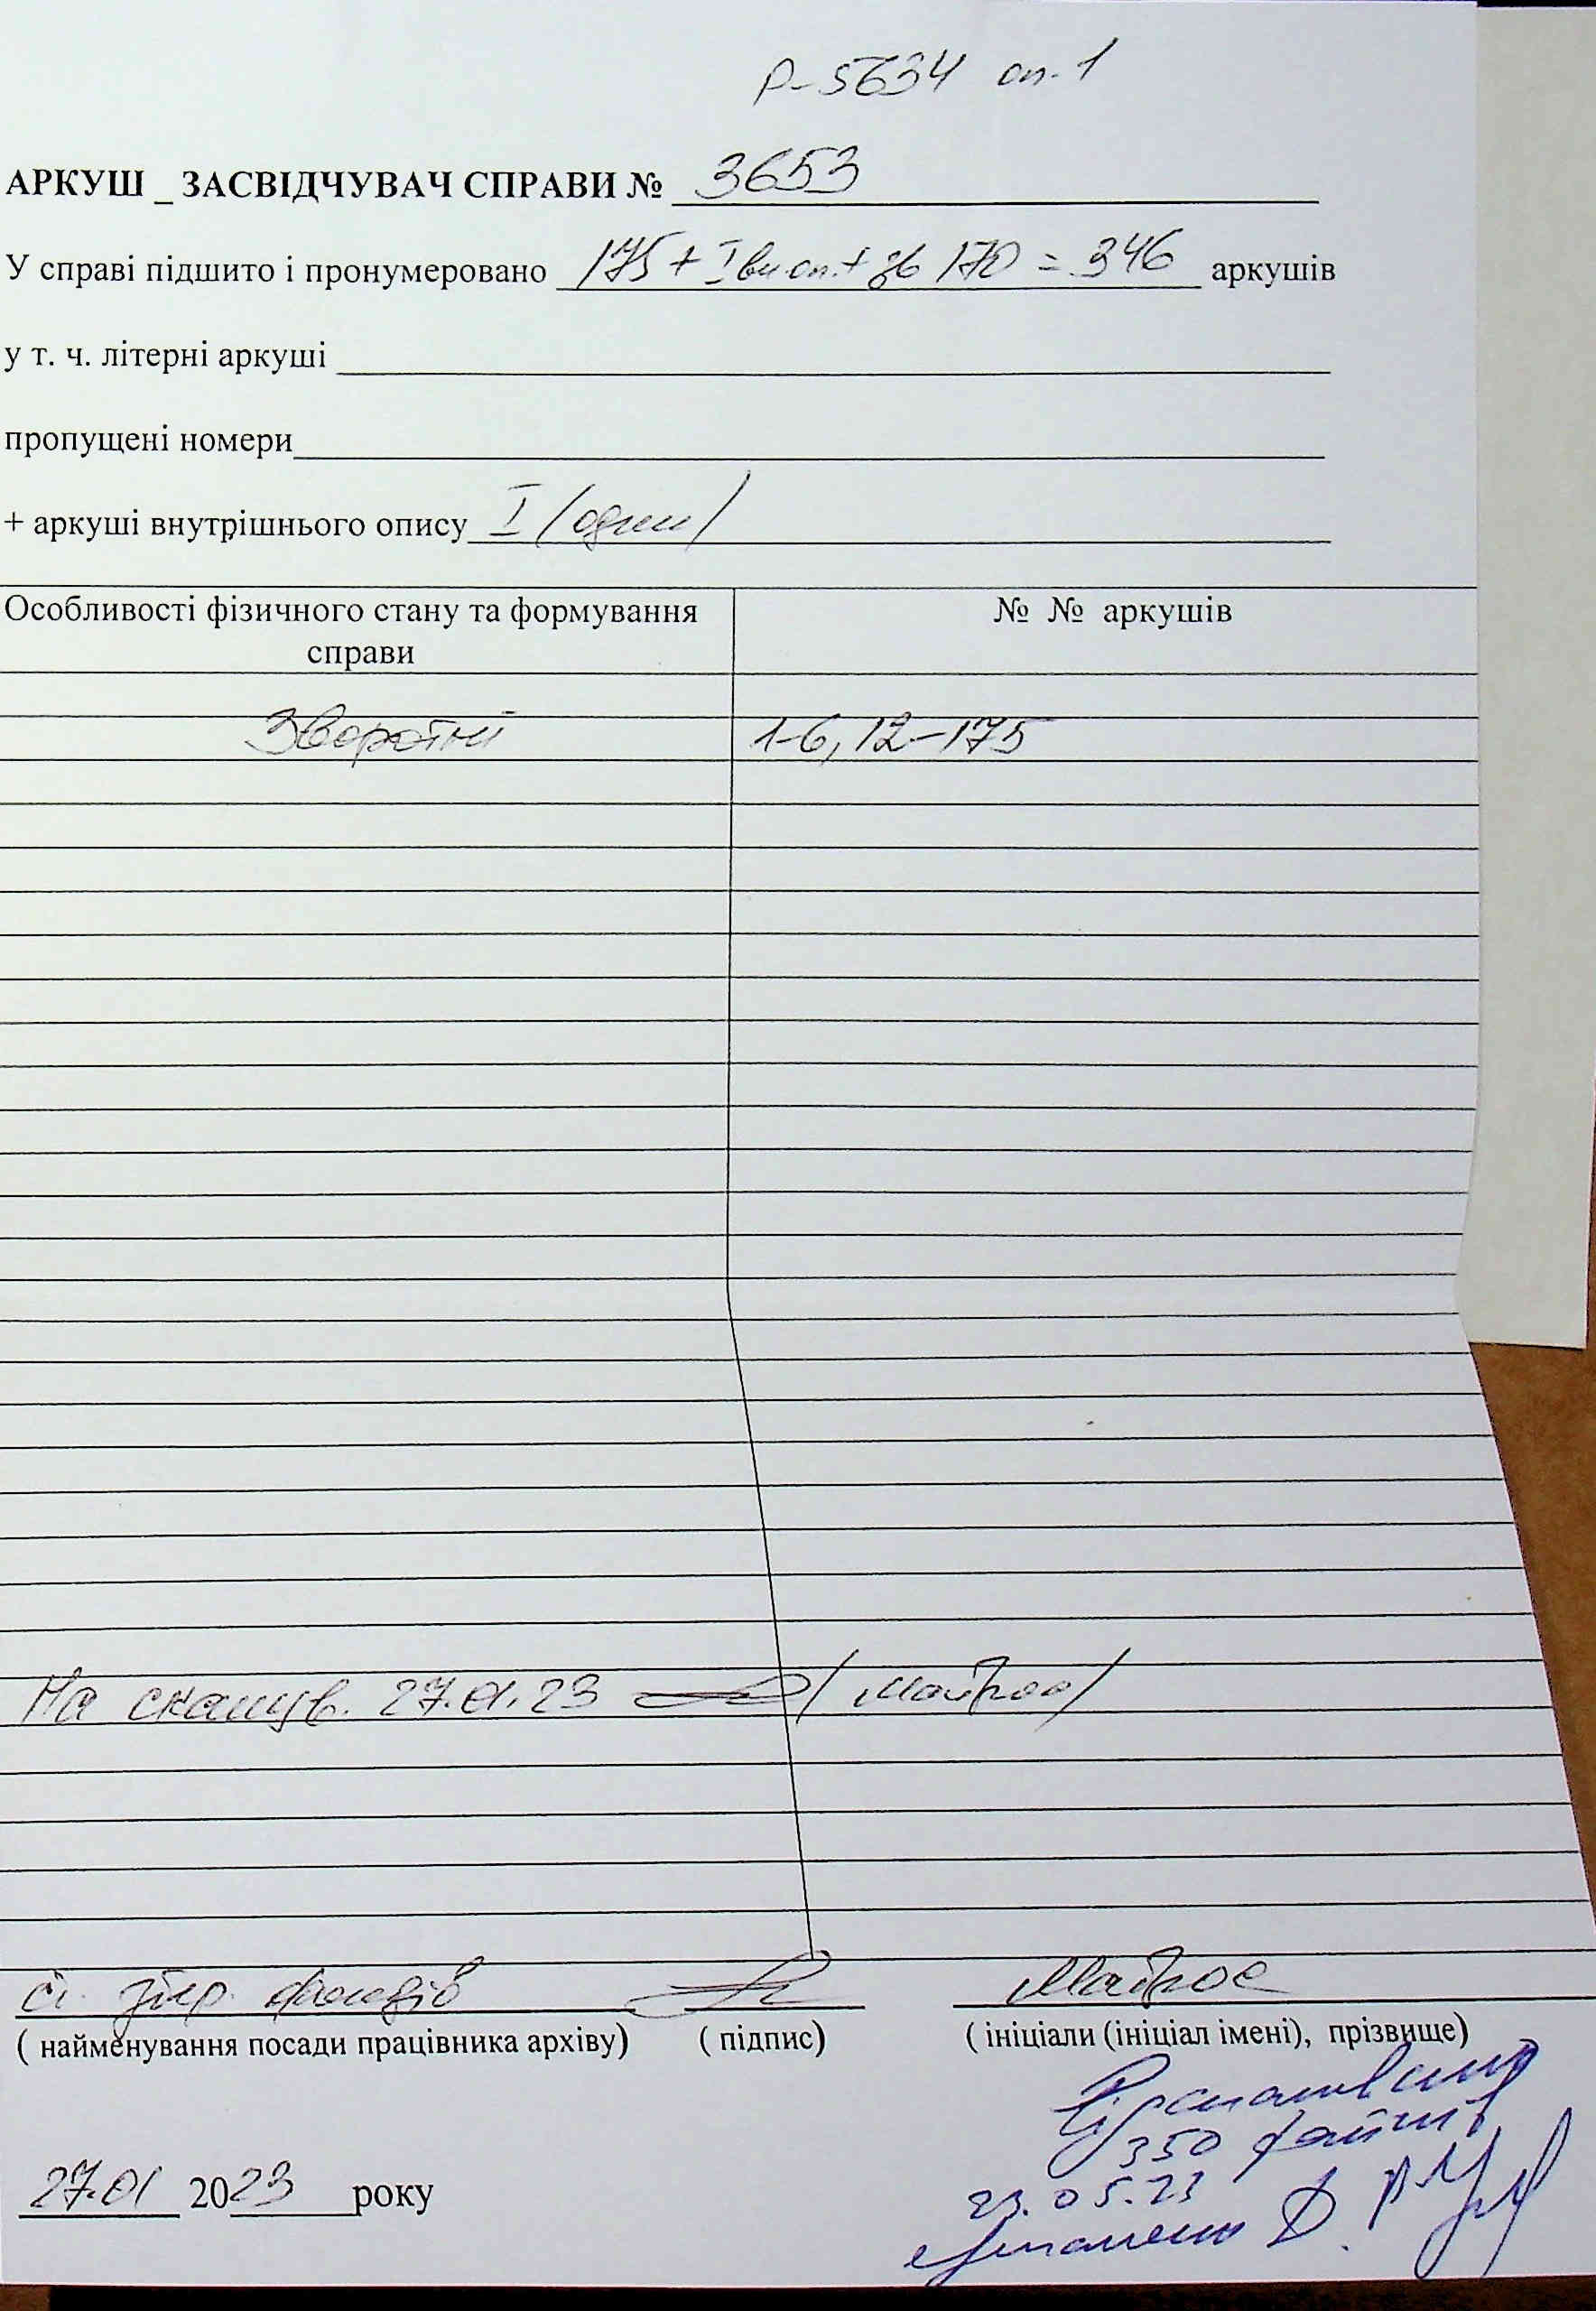 Р-5634 оп. 1
АРКУШ _ ЗАСВІДЧУВАЧ СПРАВИ № 3653
У справі підшито і пронумеровано 175 + I вн.оп. + зв 170 = 346 аркушів
у т. ч. літерні аркуші
пропущені номери
+ аркуші внутрішнього опису I /один/
Особливості фізичного стану та формування
справи
№ № аркушів
Зворотні 1-6, 12-175
На сканув. 27.01.23
фондів
( найменування посади працівника архіву) ( підпис) ( ініціали (ініціал імені), прізвище)
Відскановано
350 файлів
27.01 2023 року
23.05.23